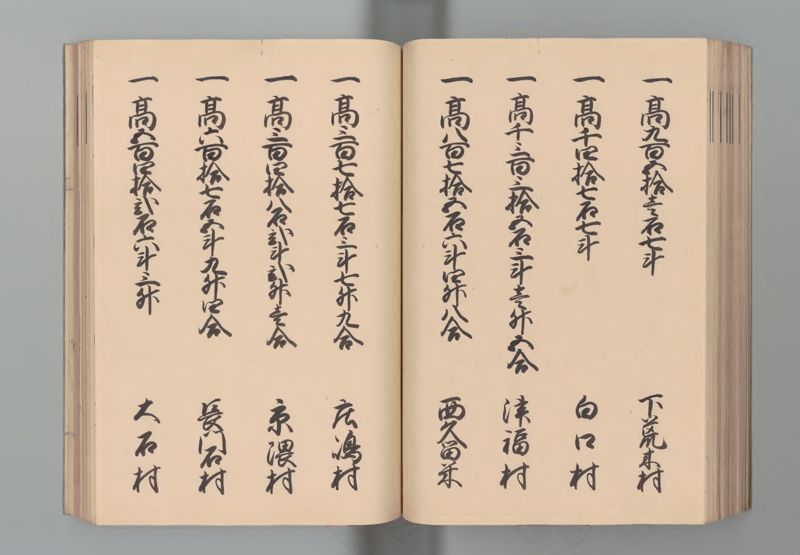 一 髙九百五拾壱石七斗 下荒木村
一 髙千四拾七石七斗 白口村
一 髙千三百三拾五石三斗壱升五合 津福村
一 髙八百七拾五石六斗四升八合 西久留米
一 髙三百七拾七石三斗七升九合 庄嶋村
一 髙三百四拾八石弐斗弐升壱合 京隈村
一 髙六百拾七石五斗九升四合 長門石村
一 髙五百四拾弐石六斗三升 大石村